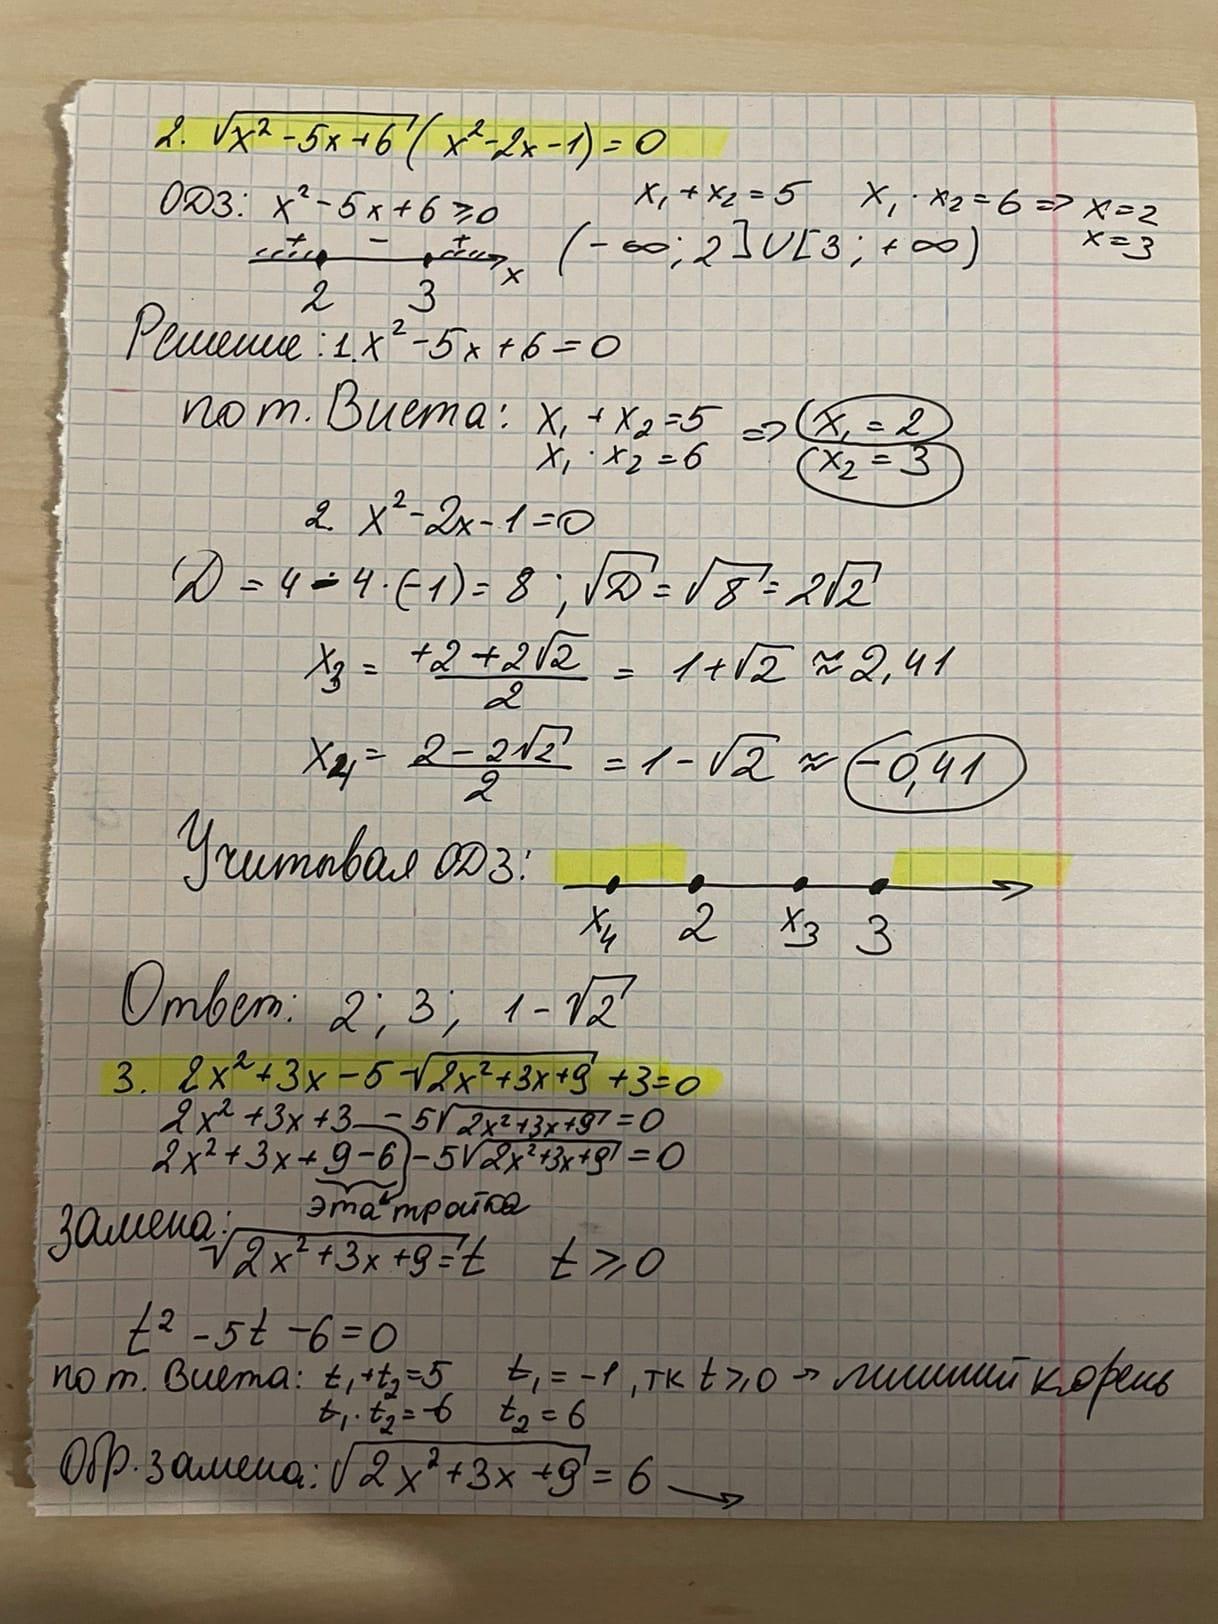 2. √(x² - 5x + 6) (x² - 2x - 1) = 0
ОДЗ: x² - 5x + 6 ⩾ 0   x₁ + x₂ = 5   x₁ · x₂ = 6 => x = 2
x = 3
+ - +   (-∞; 2] U [3; +∞)
x
2 3
Решение: 1. x² - 5x + 6 = 0
по т. Виета: x₁ + x₂ = 5 => x₁ = 2
x₁ · x₂ = 6   x₂ = 3
2. x² - 2x - 1 = 0
D = 4 - 4 · (-1) = 8 ; √D = √8 = 2√2
x₃ = (+2 + 2√2)/2 = 1 + √2 ≈ 2,41
x₄ = (2 - 2√2)/2 = 1 - √2 ≈ -0,41
Учитывая ОДЗ:
x₄ 2 x₃ 3
Ответ: 2; 3; 1 - √2
3. 2x² + 3x - 5 √(2x² + 3x + 9) + 3 = 0
2x² + 3x + 3 - 5√(2x² + 3x + 9) = 0
2x² + 3x + 9 - 6 - 5√(2x² + 3x + 9) = 0
эта тройка
Замена:
√(2x² + 3x + 9) = t   t ⩾ 0
t² - 5t - 6 = 0
по т. Виета: t₁ + t₂ = 5   t₁ = -1, тк t ⩾ 0 → лишний корень
t₁ · t₂ = -6   t₂ = 6
Обр. замена: √(2x² + 3x + 9) = 6 →